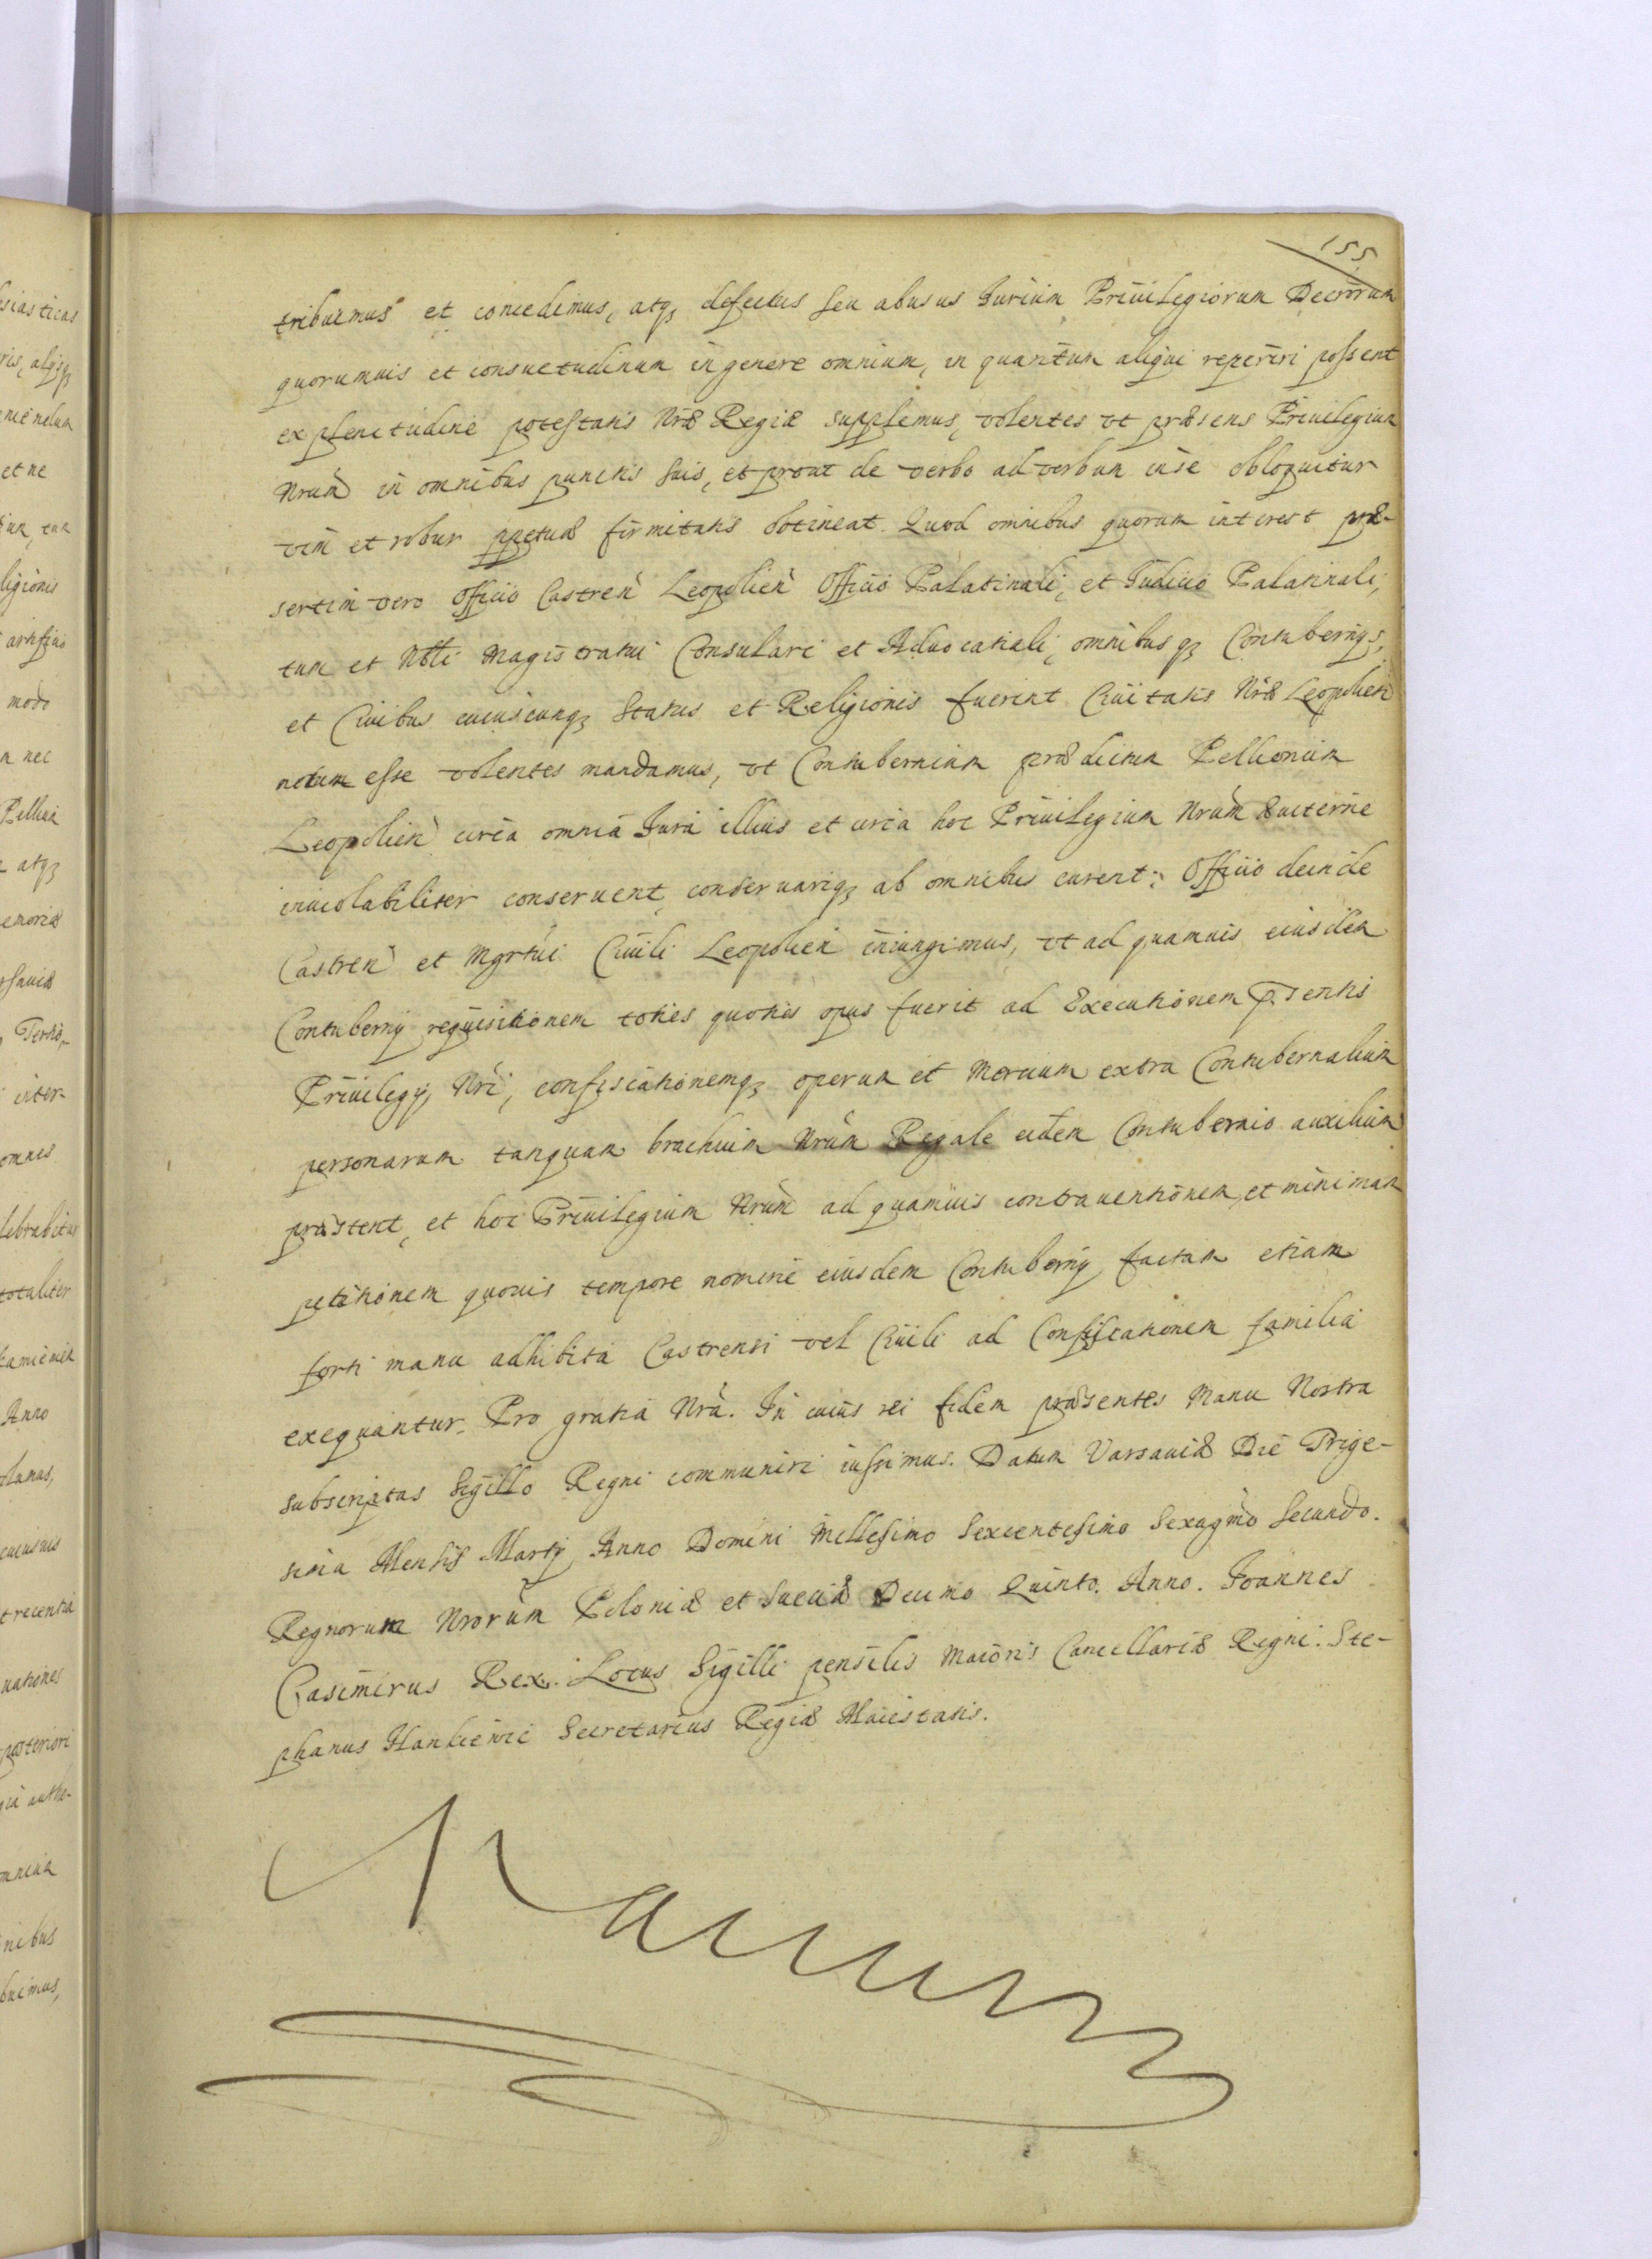 155
tribuimus et concedimus, atq3 defectus seu abusus Jurium Priuilegiorum Decrorum
quorumuis et consuetudinum in genere omnium, in quantum aliqui reperiri possent
ex plenitudine potestatis Nræ Regiæ supplemus, volentes vt præsens Priuilegium
Nrum in omnibus punctis suis, et prout de verbo ad verbum in se obloquitur
vim et robur ppetuæ firmitatis obtineat. Quod omnibus quorum interest præ-
sertim vero Officio Castren Leopolien Officio Palatinali, et Judicio Palatinali,
tum et Nbli Magistratui Consulari et Aduocatiali, omnibusq3 Contubernijs,
et Ciuibus cuiuscunq3 Status et Religionis fuerint Ciuitatis Nræ Leopolien
notum esse volentes mandamus, vt Contubernium prædictum Pellionum
Leopolien circa omnia Jura illius et circa hoc Priuilegium Nrum
inuiolabiliter conseruent, conseruariq3 ab omnibus curent; Officio deinde
Castren et Mgrtui Ciuili Leopolien iniungimus, vt ad quamuis eiusdem
Contubernij requisitionem toties quoties opus fuerit ad Executionem Psentis
Priuilegij Nri, confiscationemq3 operum et Mercium extra Contubernalium
personarum tanquam brachium Nrum Regale eidem Contubernio auxilium
præstent, et hoc Priuilegium Nrum ad quamuis contrauentionem, et minimam
petitionem quouis tempore nomine eiusdem Contubernij factam etiam
forti manu adhibita Castrensi vel Ciuili ad Confiscationem familia
exequantur. Pro gratia Nra. In cuius rei fidem præsentes Manu Nostra
subscriptas Sigillo Regni communiri iussimus. Datum Varsauiæ Die Trige-
sima Mensis Martij Anno Domini Millesimo Sexcentesimo Sexagmo Secundo.
Regnorum Nrorum Poloniæ et Sueciæ Decimo Quinto. Anno. Joannes
Casimirus Rex. Locus Sigilli pensilis Maioris Cancellariæ Regni. Ste-
phanus Hankiewic Secretarius Regiæ Maiestatis.